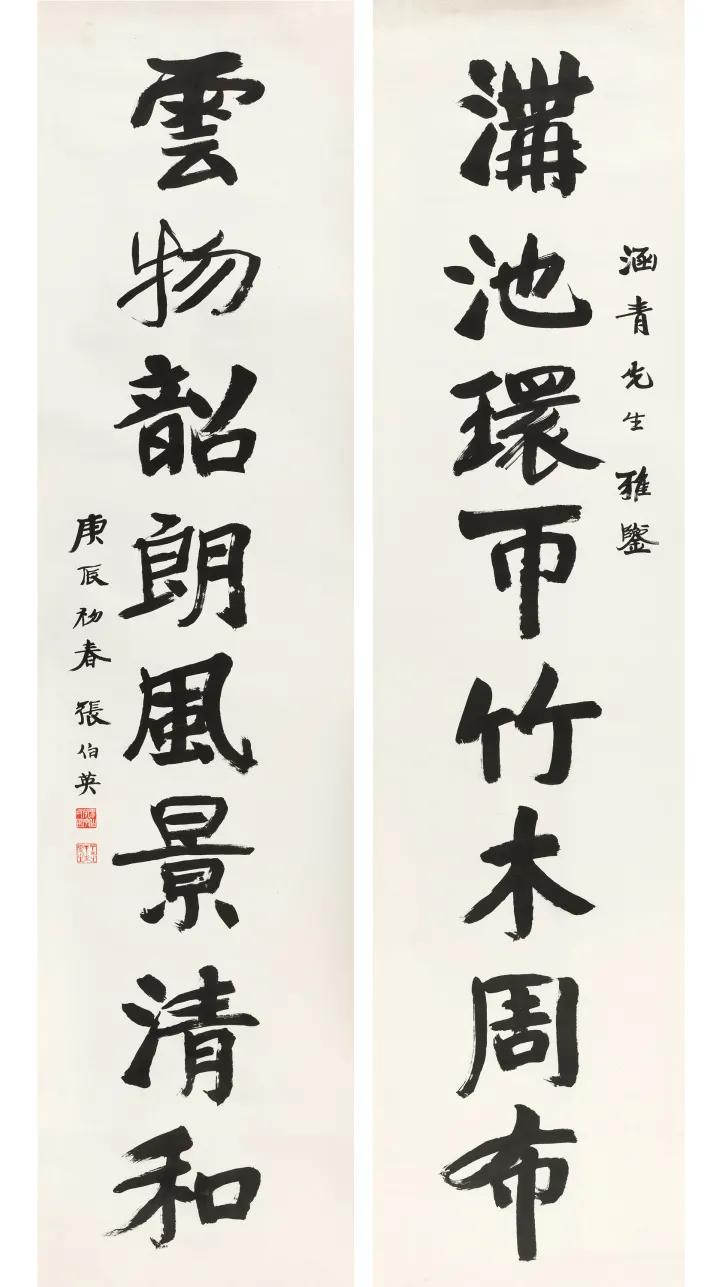 溝池環帀竹木周布
涵青先生雅鑒
雲物韶朗風景清和
庚辰初春 張伯英